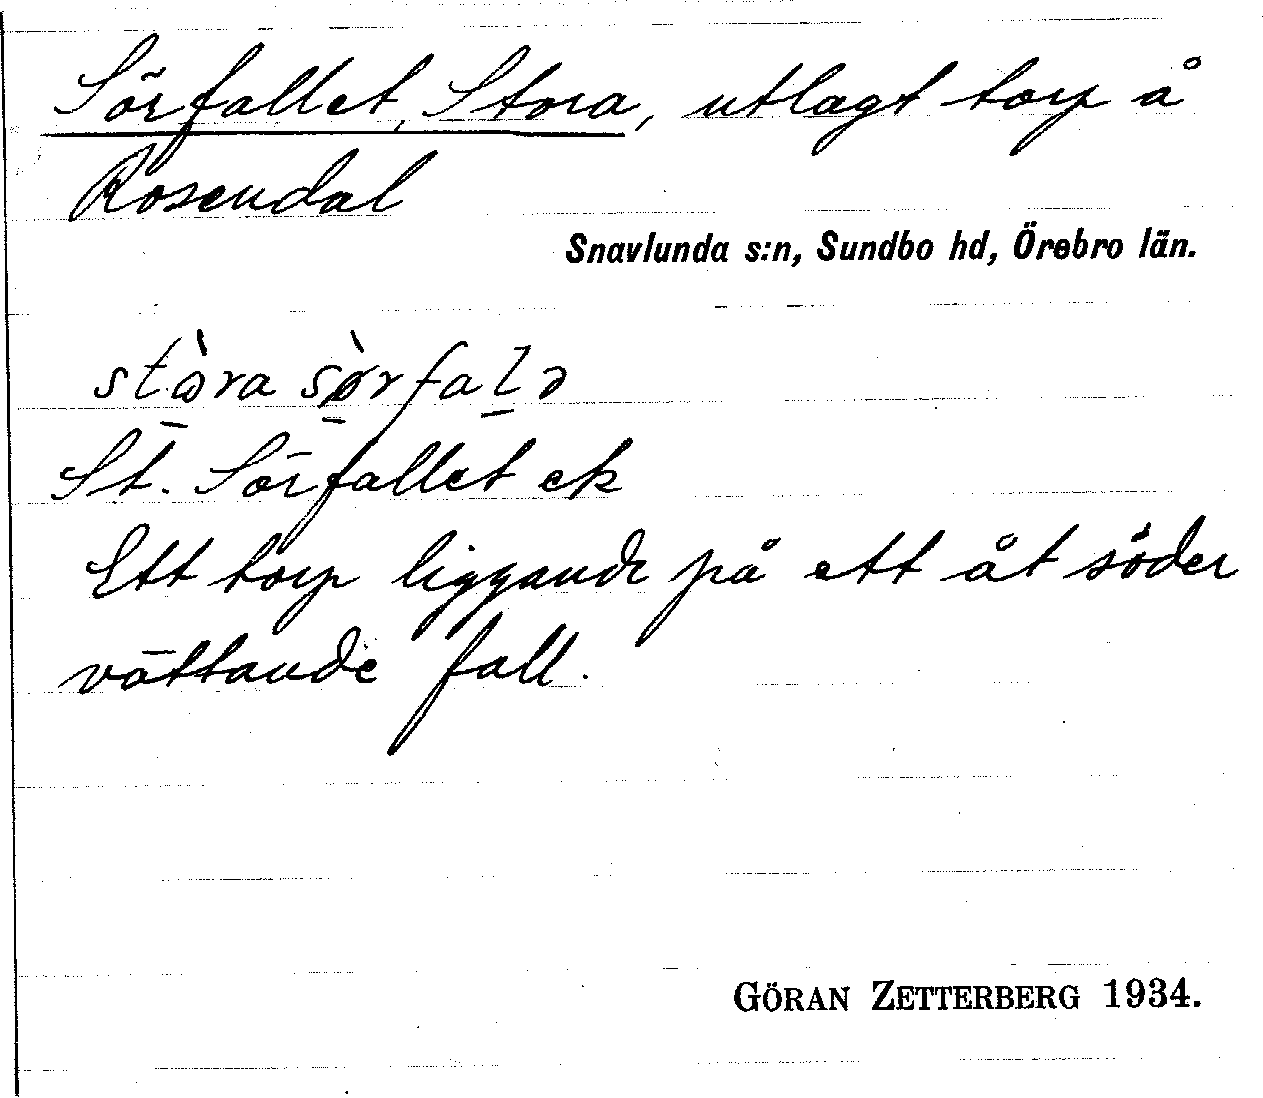 Sörfallet, Stora, utlagt torp å
Rosendal
Snavlunda s:n, Sundbo hd, Örebro län.
stɷ̀ra sø̀rfalə
St. Sörfallet ek
Ett torp liggande på ett åt söder
vättande fall.
GÖRAN ZETTERBERG 1934.